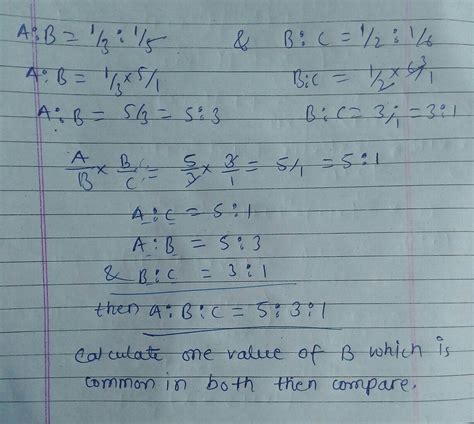 A:B = 1/3 : 1/5 & B:C = 1/2 : 1/6
A:B = 1/3 × 5/1 B:C = 1/2 × 6/1 3
A:B = 5/3 = 5:3 B:C = 3/1 = 3:1
A/B × B/C = 5/3 × 3/1 = 5/1 = 5:1
A:C = 5:1
A:B = 5:3
& B:C = 3:1
then A:B:C = 5:3:1
Calculate one value of B which is
common in both then compare.